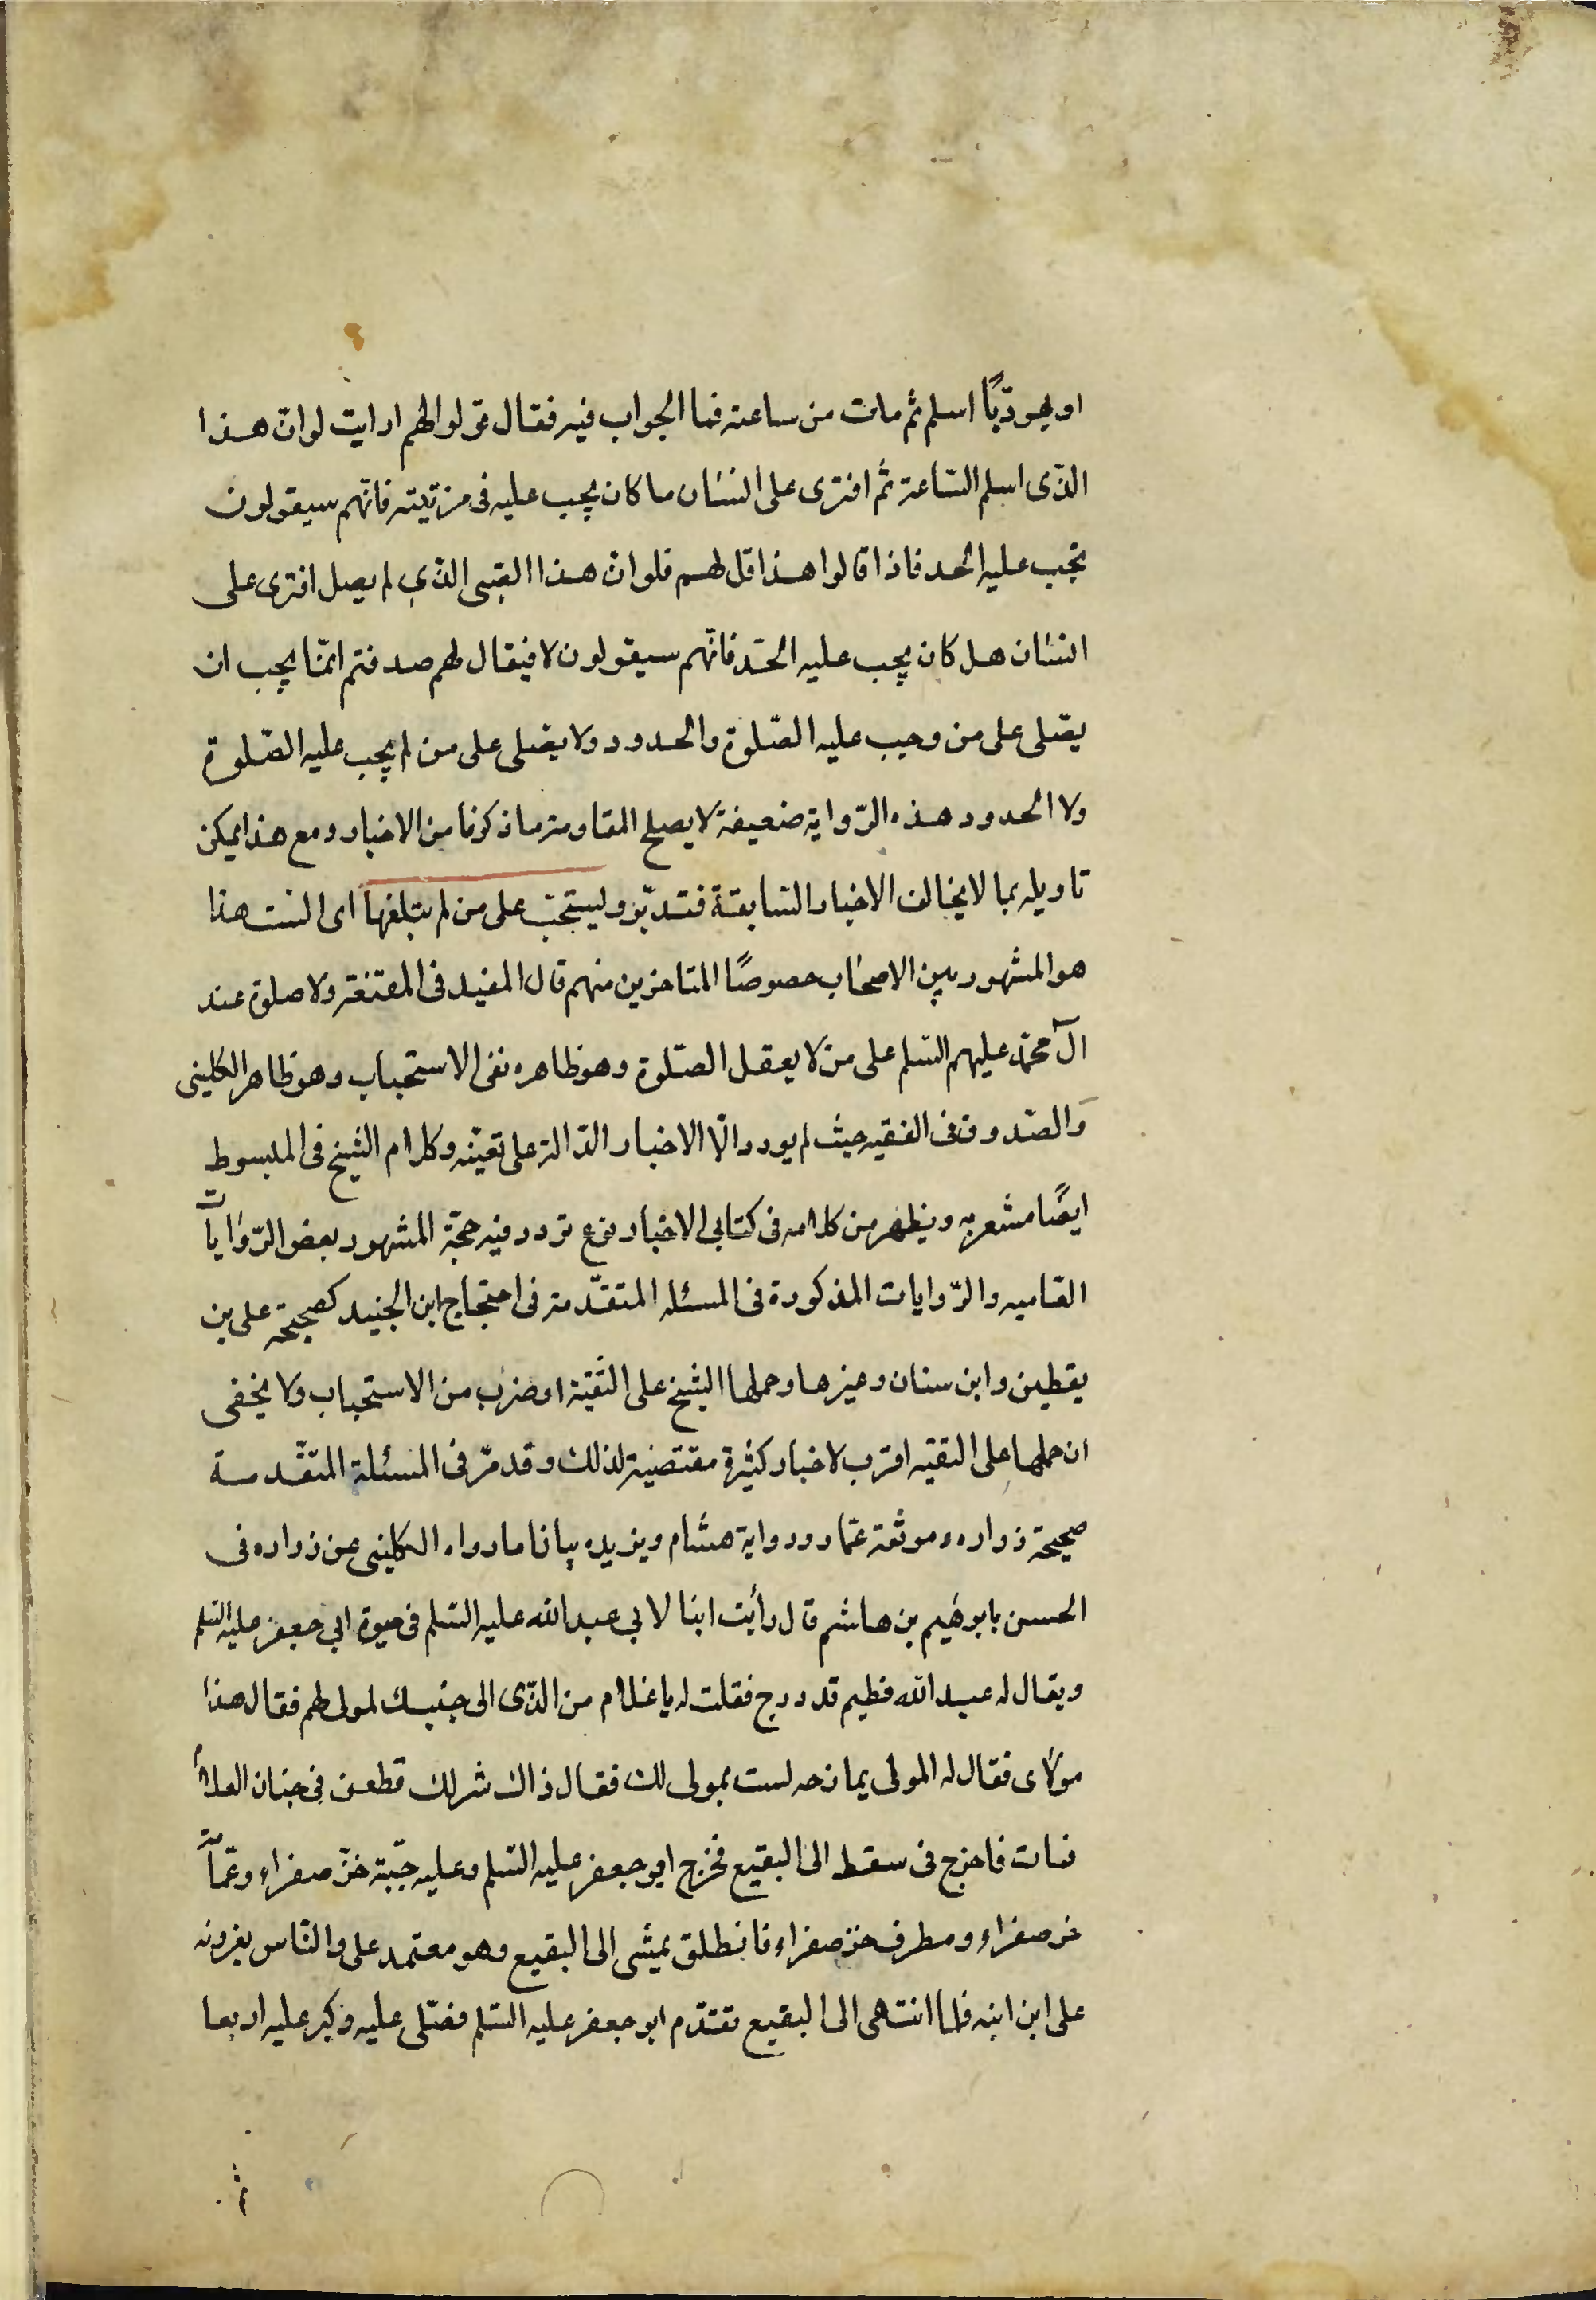 او يهوديّاً اسلم ثم مات من ساعته فما الجواب فيه فقال قولوا لهم ارايت لو انّ هذا
الذّى اسلم السّاعة ثم افترى على انسٰان ما كان يجب عليه فى فريته فانّهم سيقولون
يجب عليه الحد فاذا قالوا هذا قل لهم فلو انّ هذا الصّبى الذّي لم يصل افترى على
انسٰان هل كان يجب عليه الحدّ فانّهم سيقولون لا فيقال لهم صدقتم انّما يجب ان
يصّلى على من وجب عليه الصّلوة والحدود ولا يصّلى على من لم يجب عليه الصّلوة
ولا الحدود هذه الرّواية ضعيفة لا يصلح المقاومة ما ذكرنا من الاخبار ومع هذا يمكن
تاويله بما لا يخالف الاخبار السّابقة فتدبّر وليستحبّ على من لم يبلغها اى الست هذا
هو المشهور بين الاصحٰاب خصوصًا المتاخرين منهم قال المفيد فى المقنعة ولا صلوة عند
آل محمّد عليهم السّلم على من لا يعقل الصّلوة وهو ظاهره نفى الاستحباب وهو ظاهر الكلينى
والصّدوق فى الفقيه حيث لم يورد الّا الاخبار الدّالة على تعيّنه وكلام الشيخ فى المبسوط
ايضًا مشعر به ويظهر من كلامه فى كتابى الاخبار نوع تردد فيه حجّة المشهور بعض الرّوٰايات
العّاميه والرّوايات المذكورة فى المسئله المتقدّمة فى احتجاج ابن الجنيد كصحيحة على بن
يقطين وابن سنان وغيرها وحملها الشيخ على التّقيّة او ضرب من الاستحباب ولا يخفى
ان حملها على التقيه اقرب لاخبار كثيرة مقتضية لذلك وقد مرّ فى المسئلة المتقّدمة
صحيحة زراره وموثقة عمّار ورواية هشام ويزيده بيانا ما رواه الكلينى عن زراره فى
الحسن بابرهيم بن هاشم قال رأيت ابنا لابي عبد الله عليه السّلم فى حيوة ابي جعفر عليه السّلم
ويقال له عبد الله فطيم قد درج فقلت له يا غلام من الذّى الى جنبك لمولى لهم فقال هذا
مولٰاى فقال له المولى يمازحه لست بمولى لك فقال ذاك شر لك فطعن فى جنان الغلام
فمات فاخرج فى سقط الى البقيع فخرج ابو جعفر عليه السّلم وعليه جّبة خزّ صفراء وعمّامة
خز صفراء ومطرف خز صفراء فانطلق يمشى الى البقيع وهو معتمد على والنّاس يعزونه
على ابن ابنه فلما انتهى الى البقيع تقدّم ابو جعفر عليه السّلم فصّلى عليه وكبر عليه اربعا
ثم